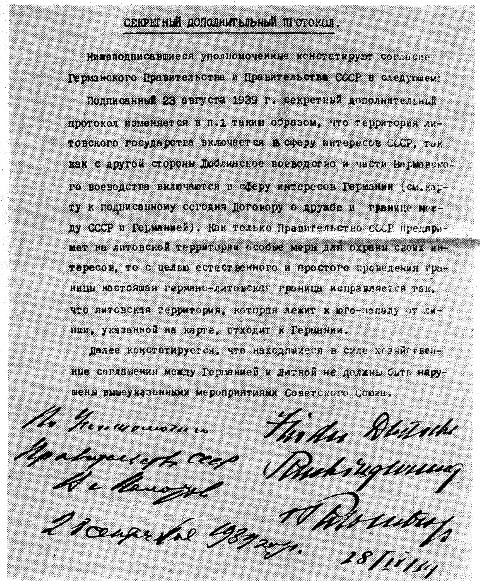 СЕКРЕТНЫЙ ДОПОЛНИТЕЛЬНЫЙ ПРОТОКОЛ.
Нижеподписавшиеся уполномоченные констатируют согласие
Германского Правительства и Правительства СССР в следующем:
Подписанный 23 августа 1939 г. секретный дополнительный
протокол изменяется в п.1 таким образом, что территория ли-
товского государства включается в сферу интересов СССР, так
как с другой стороны Люблинское воеводство и части Варшавско-
го воеводства включаются в сферу интересов Германии (см.кар-
ту к подписанному сегодня Договору о дружбе и границе меж-
ду СССР и Германией). Как только Правительство СССР предпри-
мет на литовской территории особые меры для охраны своих ин-
тересов, то с целью естественного и простого проведения гра-
ницы настоящая германо-литовская граница исправляется так,
что литовская территория, которая лежит к юго-западу от ли-
нии, указанной на карте, отходит к Германии.
Далее констатируется, что находящиеся в силе хозяйствен-
ные соглашения между Германией и Литвой не должны быть нару-
шены вышеуказанными мероприятиями Советского Союза.
По Уполномочию
Правительства СССР
В. Молотов
28 сентября 1939 г.
Für die Deutsche
Reichsregierung